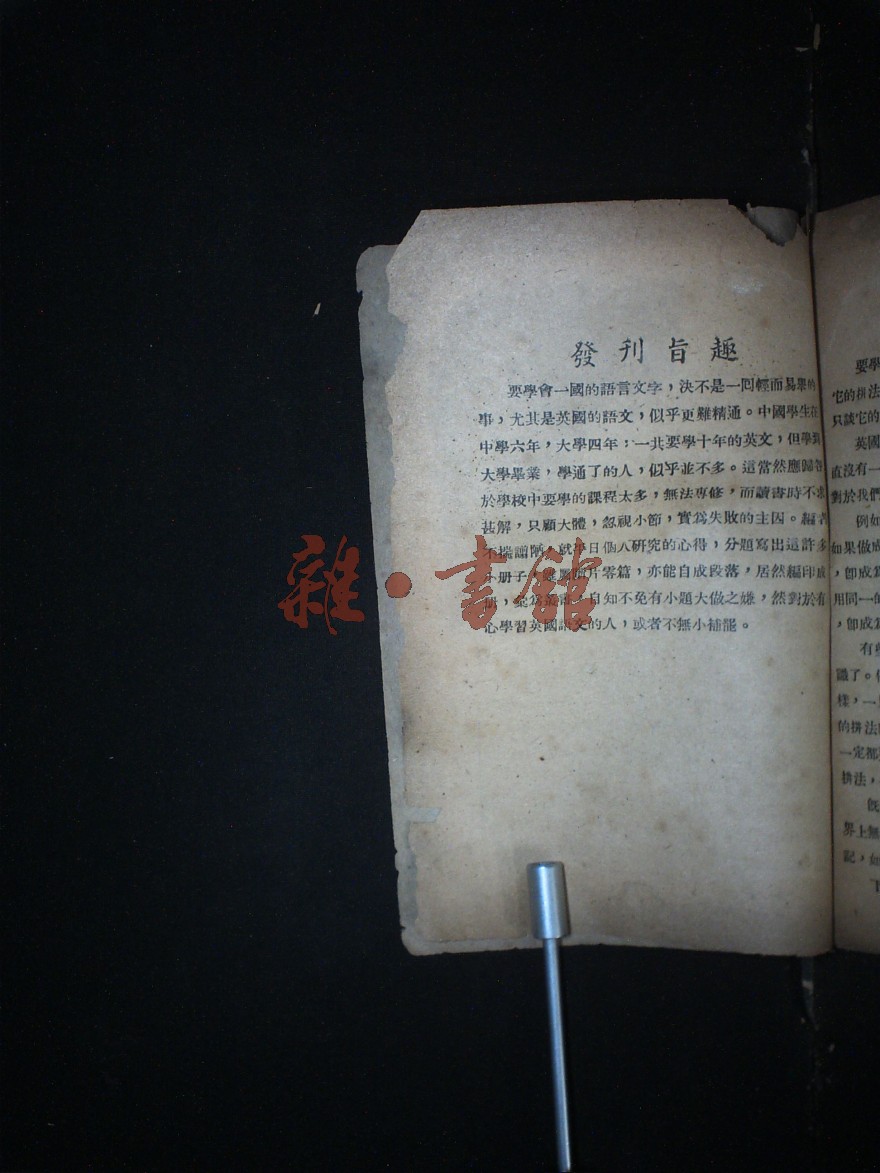 發刊旨趣
要學會一國的語言文字,決不是一回輕而易舉的
事,尤其是英國的語文,似乎更難精通。中國學生在
中學六年,大學四年;一共要學十年的英文,但學到
大學畢業,學通了的人,似乎並不多。這當然應歸咎
於學校中要學的課程太多,無法專修,而讀書時不求
甚解,只顧大體,忽視小節,實為失敗的主因。編者
不揣譾陋,就平日個人研究的心得,分題寫出這許多
小册子,雖屬斷片零篇,亦能自成段落,居然編印成
册,彙為叢書,自知不免有小題大做之嫌,然對於有
心學習英國語文的人,或者不無小補罷。
要學
它的拼法
只談它的
英國
直沒有一
對於我們
例如
如果做成
,卽成為
用同一的
,卽成為
有些
識了。
樣,一
的拼法
一定都
拼法,
旣
界上無
記,如
下
雜·書館